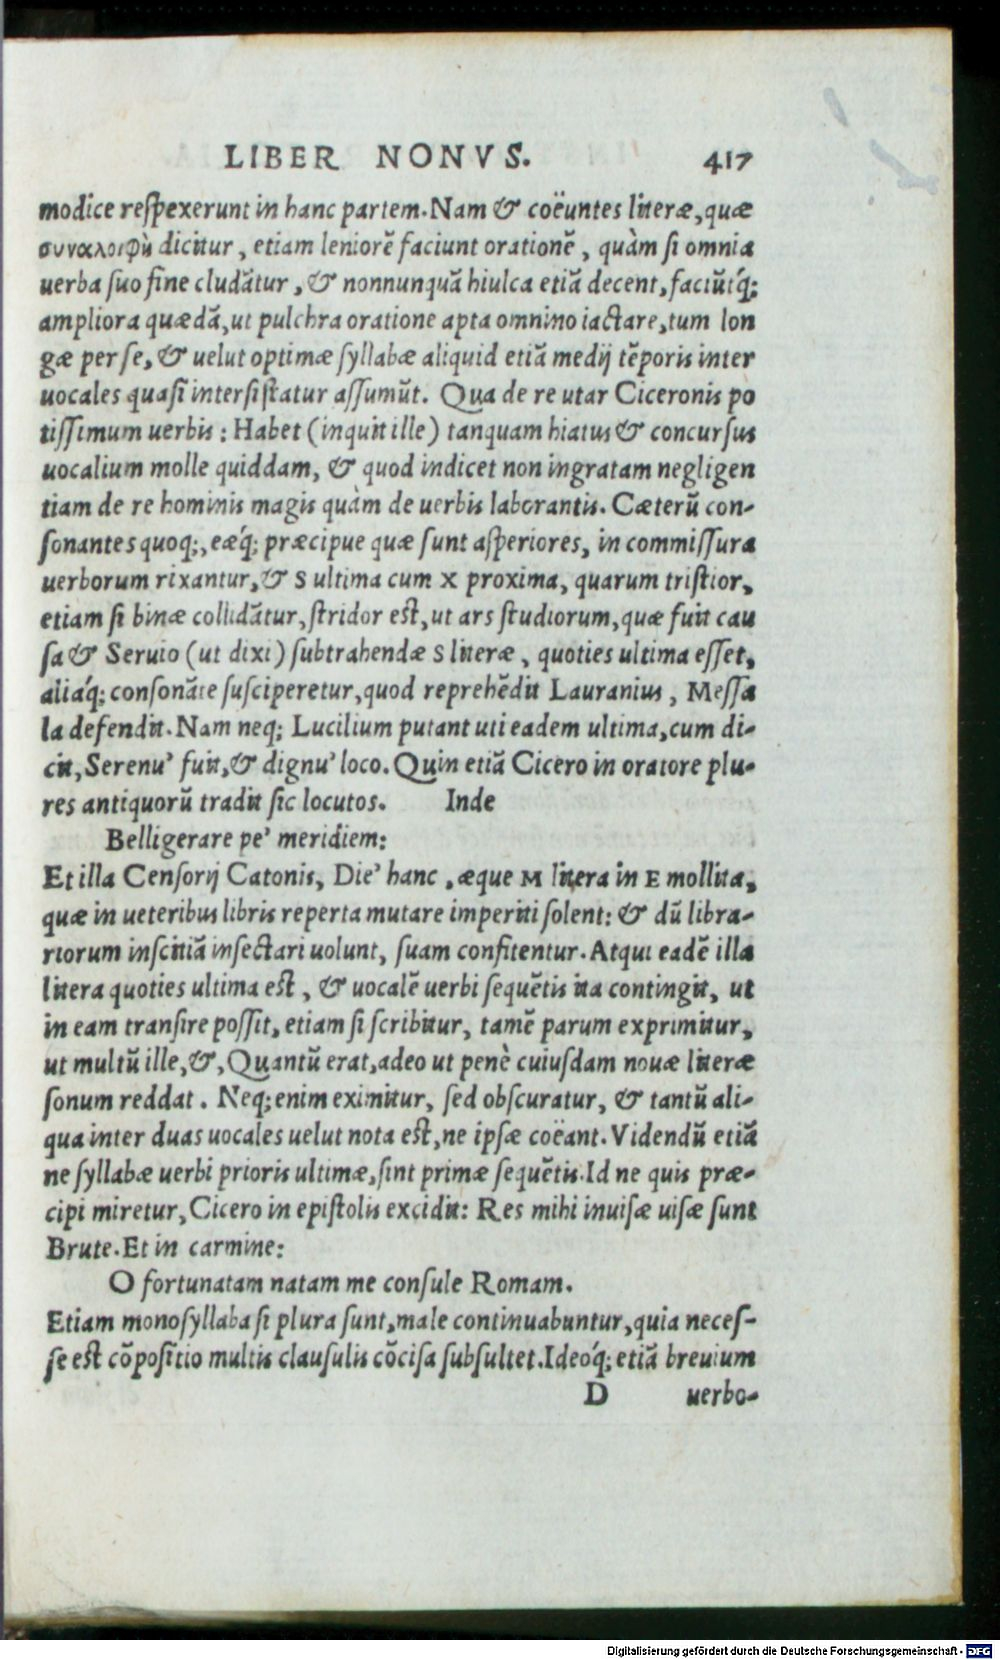 LIBER NONVS. 417
modice reſpexerunt in hanc partem. Nam & coëuntes literæ, quæ
συναλοιφὴ dicitur, etiam leniorē faciunt orationē, quàm ſi omnia
uerba ſuo fine cludātur, & nonnunquā hiulca etiā decent, faciūtq́;
ampliora quædā, ut pulchra oratione apta omnino iactare, tum lon
gæ per ſe, & uelut optimæ ſyllabæ aliquid etiā medij tēporis inter
uocales quaſi interſiſtatur aſſumūt. Qua de re utar Ciceronis po
tiſſimum uerbis: Habet (inquit ille) tanquam hiatus & concurſus
uocalium molle quiddam, & quod indicet non ingratam negligen
tiam de re hominis magis quàm de uerbis laborantis. Cæterū con-
ſonantes quoq;, eæq́; præcipue quæ ſunt aſperiores, in commiſſura
uerborum rixantur, & S ultima cum X proxima, quarum triſtior,
etiam ſi binæ collidātur, ſtridor eſt, ut ars ſtudiorum, quæ fuit cau
ſa & Seruio (ut dixi) ſubtrahendæ S literæ, quoties ultima eſſet,
aliáq; conſonāte ſuſciperetur, quod reprehēdit Lauranius, Meſſa
la defendit. Nam neq; Lucilium putant uti eadem ultima, cum di-
cit, Serenu' fuit, & dignu' loco. Quin etiā Cicero in oratore plu-
res antiquorū tradit ſic locutos. Inde
Belligerare pe' meridiem:
Et illa Cenſorij Catonis, Die' hanc, æque M litera in E mollita,
quæ in ueteribus libris reperta mutare imperiti ſolent: & dū libra-
riorum inſcitiā inſectari uolunt, ſuam confitentur. Atqui eadē illa
litera quoties ultima eſt, & uocalē uerbi ſequētis ita contingit, ut
in eam tranſire poſſit, etiam ſi ſcribitur, tamē parum exprimitur,
ut multū ille, &, Quantū erat, adeo ut penè cuiuſdam nouæ literæ
ſonum reddat. Neq; enim eximitur, ſed obſcuratur, & tantū ali-
qua inter duas uocales uelut nota eſt, ne ipſæ coëant. Videndū etiā
ne ſyllabæ uerbi prioris ultimæ, ſint primæ ſequētis. Id ne quis præ-
cipi miretur, Cicero in epiſtolis excidit: Res mihi inuiſæ uiſæ ſunt
Brute. Et in carmine:
O fortunatam natam me conſule Romam.
Etiam monoſyllaba ſi plura ſunt, male continuabuntur, quia neceſ-
ſe eſt cōpoſitio multis clauſulis cōciſa ſubſultet. Ideóq; etiā breuium
D uerbo-
Digitalisierung gefördert durch die Deutsche Forschungsgemeinschaft - DFG